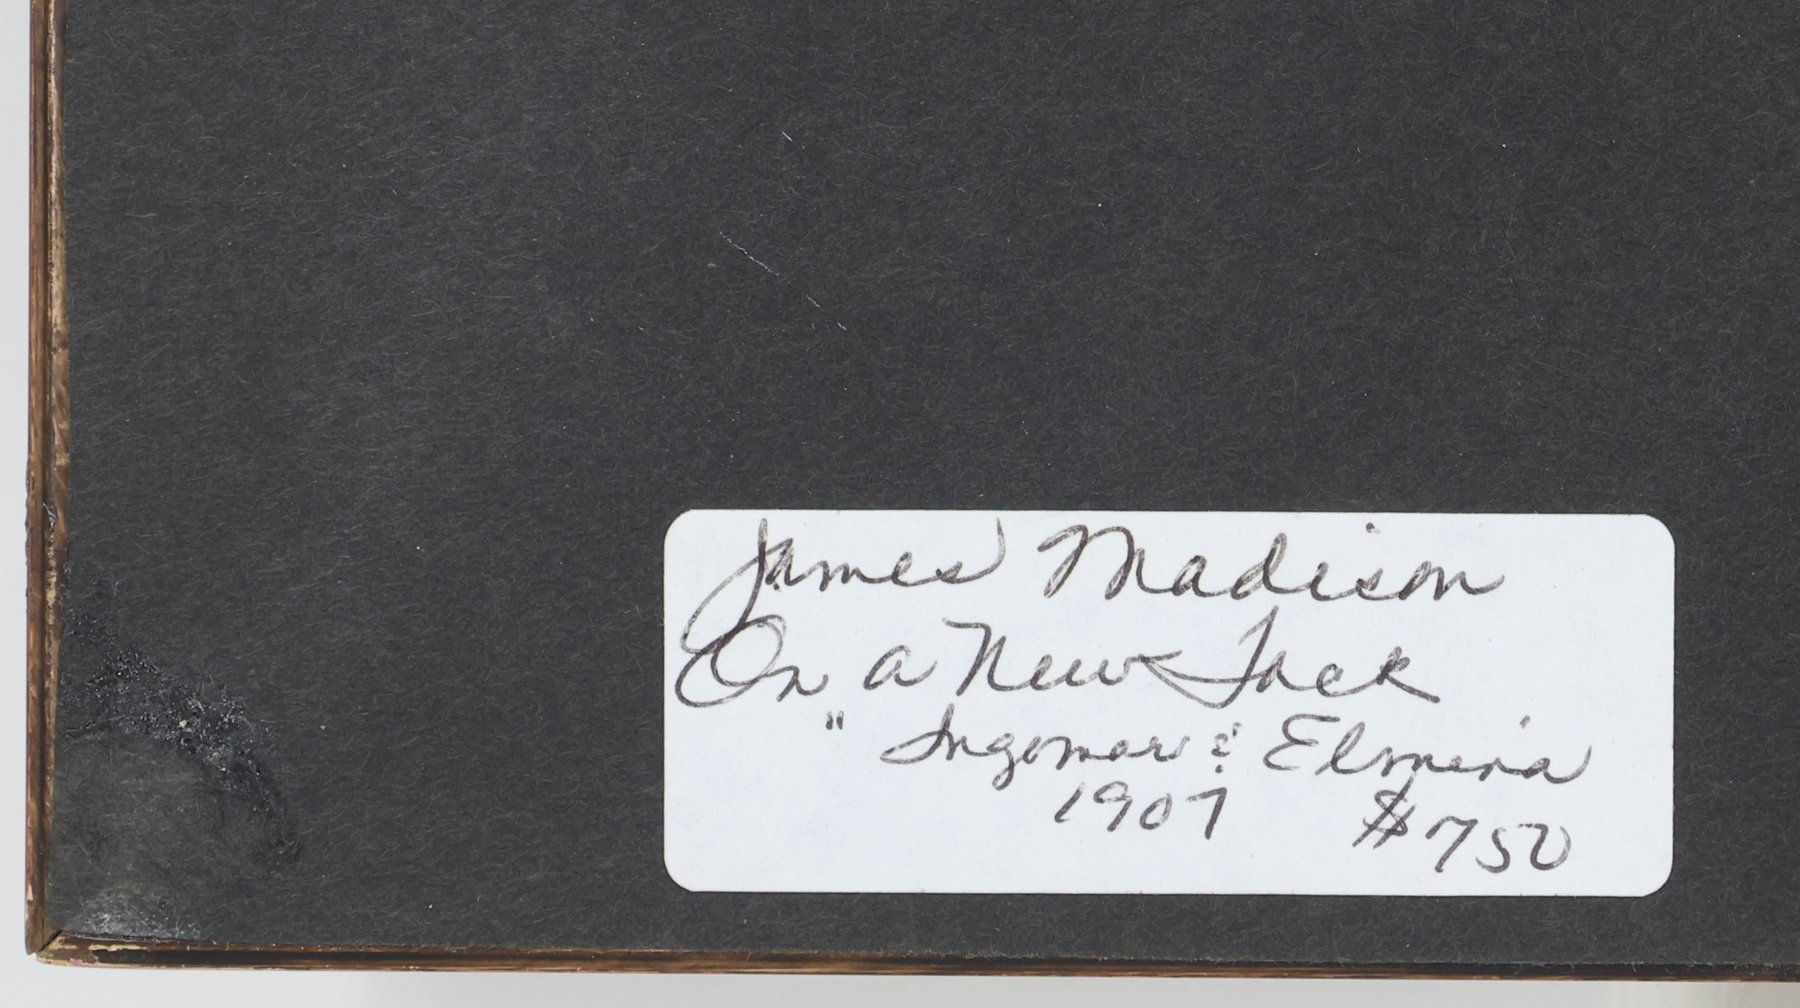 James Madison
On a New Tack
" Ingomar & Elmina
1907 $750